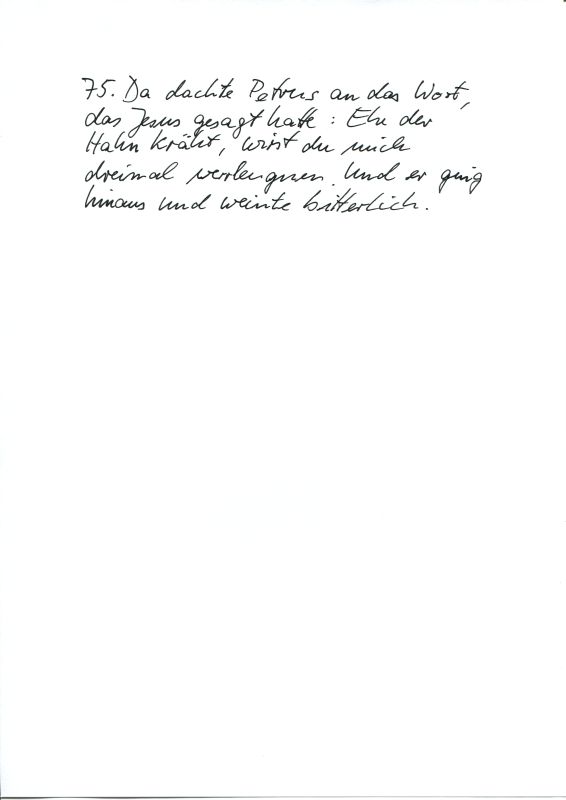 75. Da dachte Petrus an das Wort,
das Jesus gesagt hatte : Ehe der
Hahn kräht, wirst du mich
dreimal verleugnen. Und er ging
hinaus und weinte bitterlich.